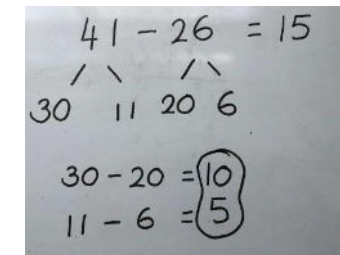 41 - 26 = 15
30 11 20 6
30 - 20 = 10
11 - 6 = 5